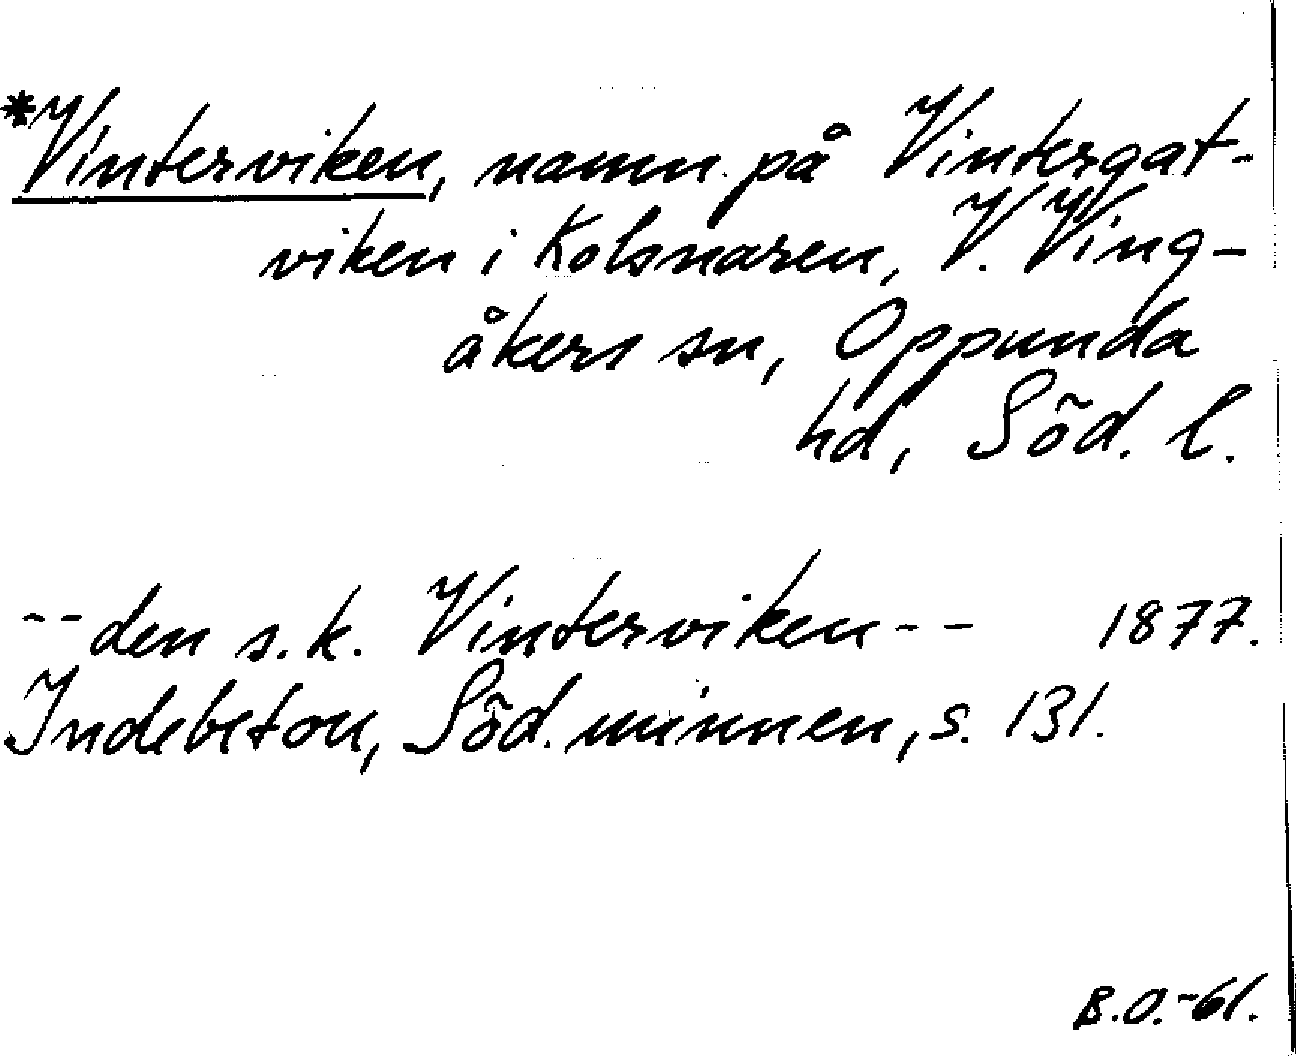 *Vinterviken, namn på Vintergat-
viken i Kolsnaren, V. Ving-
åkers sn, Oppunda
hd, Söd. l.
-- den s.k. Vinterviken -- 1877.
Indebetou, Söd. minnen, s. 131.
B.O.-61.